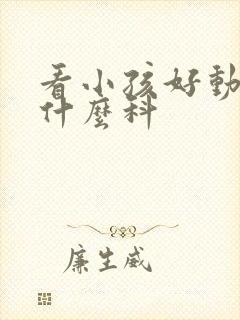 看小孩好動
什麼科
廉生威